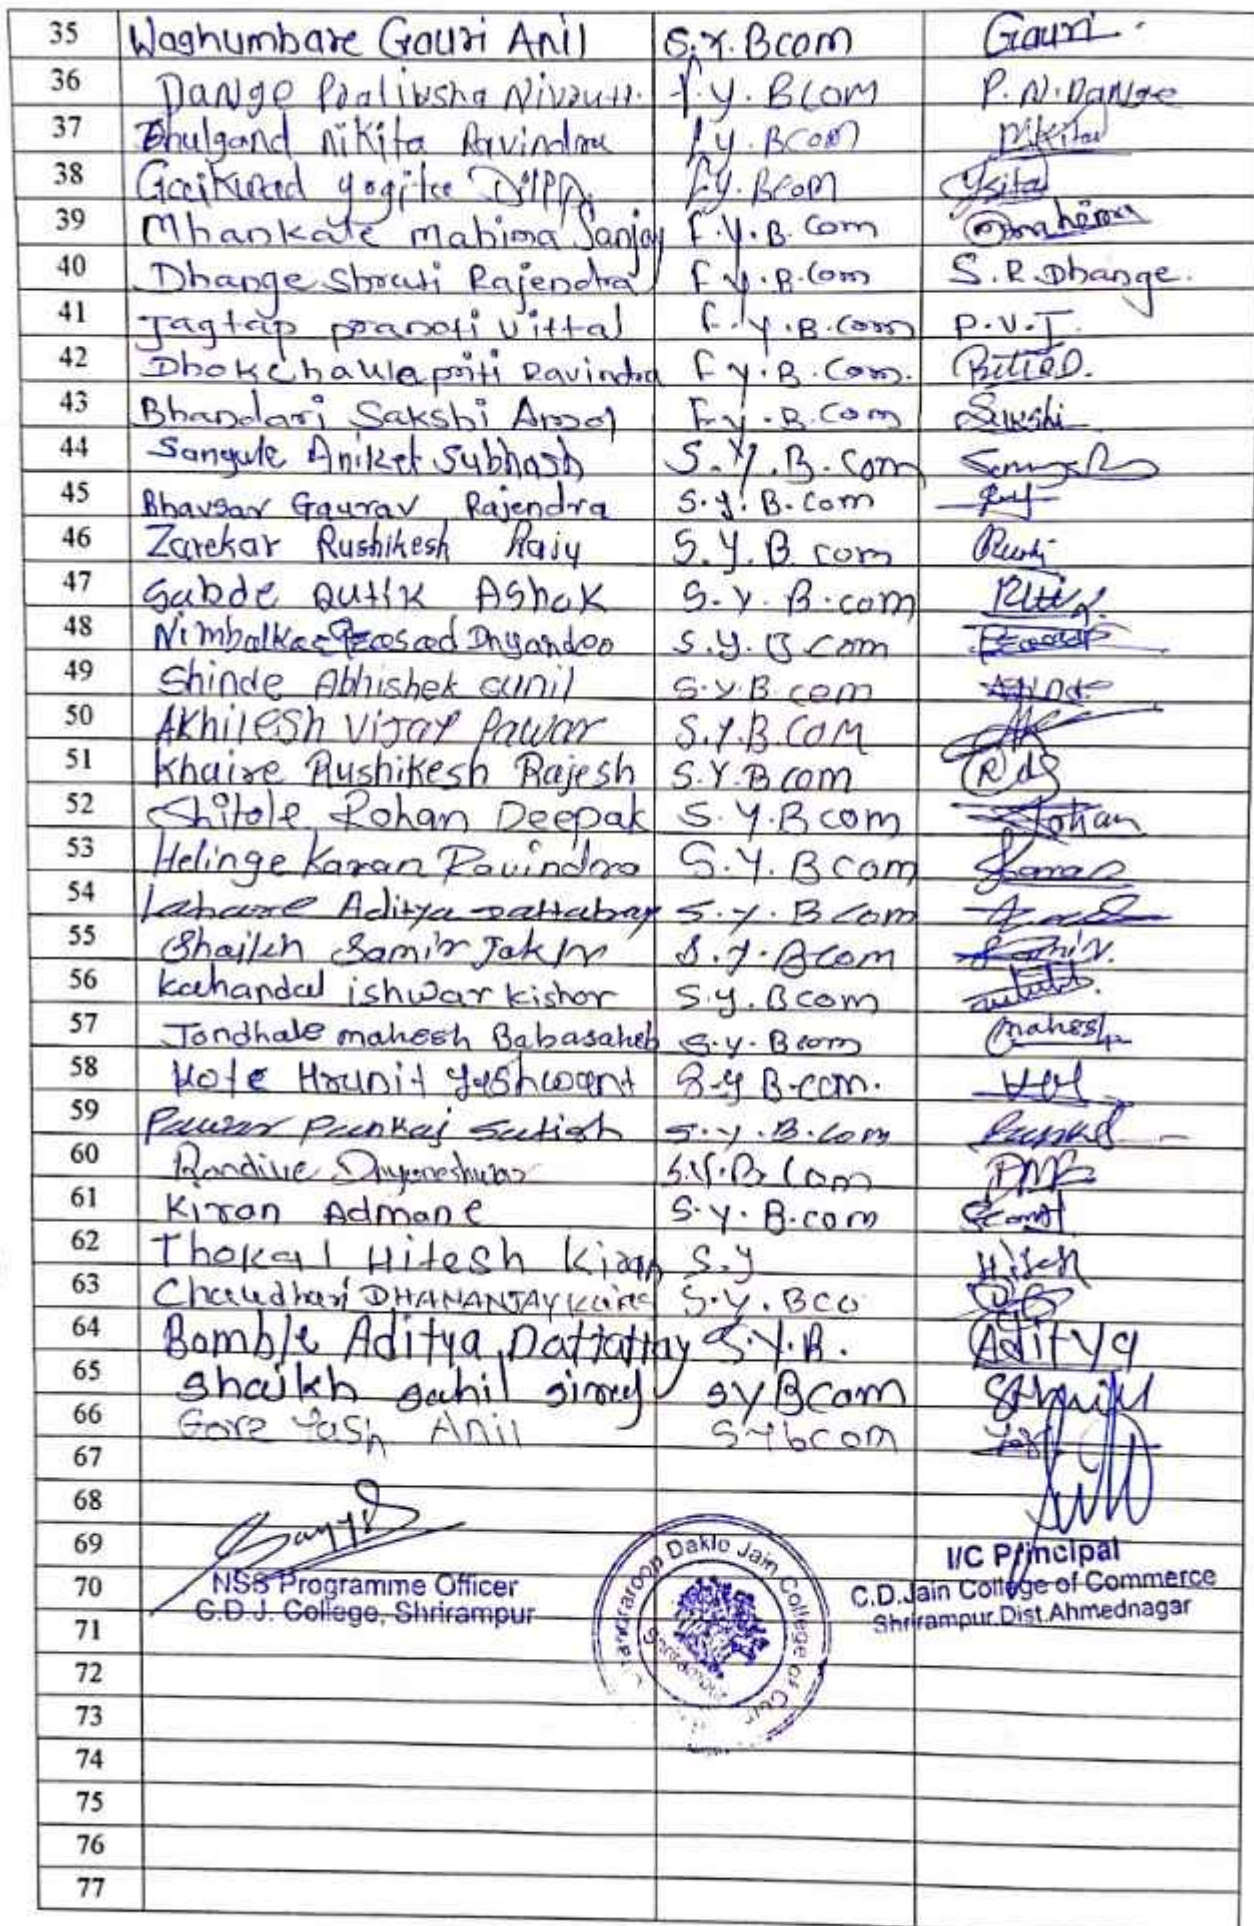 35 Waghumbare Gauri Anil S.Y.Bcom Gauri
36 Dange Nivrutti F.Y. BCOM P.N.Dange
37 Bhulgand Nikita Ravindra F.y. BCom Nikita
38 Gaikwad yogita F.y. Bcom
39 Mhankale mahima Sanjay F.Y.B.Com mahima
40 Dhange Shruti Rajendra F.Y.B.Com S.R.Dhange.
41 Jagtap pranoti vittal F.Y.B.com P.V.J.
42 Dhokchaule priti Ravindra F.Y.B.Com.
43 Bhandari Sakshi Amol F.y.B.Com Sakshi
44 Sangule Aniket Subhash S.Y.B.Com
45 Bhavsar Gaurav Rajendra S.Y.B.Com
46 Zarekar Rushikesh Raju S.Y.B.com Rushi
47 Gabde Rutik Ashok S.Y.B.com
48 Nimbalkar Prasad Dnyandeo S.Y.B.com
49 Shinde Abhishek sunil S.Y.B.com
50 Akhilesh Vijay Pawar S.Y.B.COM
51 Khaire Rushikesh Rajesh S.Y.B.com
52 Shitole Rohan Deepak S.Y.B.com Rohan
53 Helinge Karan Ravindra S.Y.B.com Karan
54 Lahare Aditya Dattatray S.Y.B.com
55 Shaikh Samir Jakir S.Y.B.com Samir
56 Kahandal ishwar kishor S.Y.B.com
57 Jondhale mahesh Babasaheb S.Y.Bcom mahesh
58 Kote Hrunit Yashwant S.Y B.com.
59 Pawar Pankaj Satish S.Y.B.com Pankaj
60 Randive Dnyaneshwar S.Y.B.Com
61 Kiran Admane S.Y.B.com
62 Thokal Hitesh Kiran S.y Hitesh
63 Chaudhari DHANANJAY S.Y.BCO
64 Bomble Aditya Dattatray S.Y.B. Aditya
65 Shaikh sahil siraj SYBcom
66 Gore Yash Anil SYbcom Yash
67
68
69 I/C Principal
70 NSS Programme Officer C.D.Jain College of Commerce
71 C.D.J. College, Shrirampur Shrirampur.Dist.Ahmednagar
Daklc Jain College of
72
73
74
75
76
77